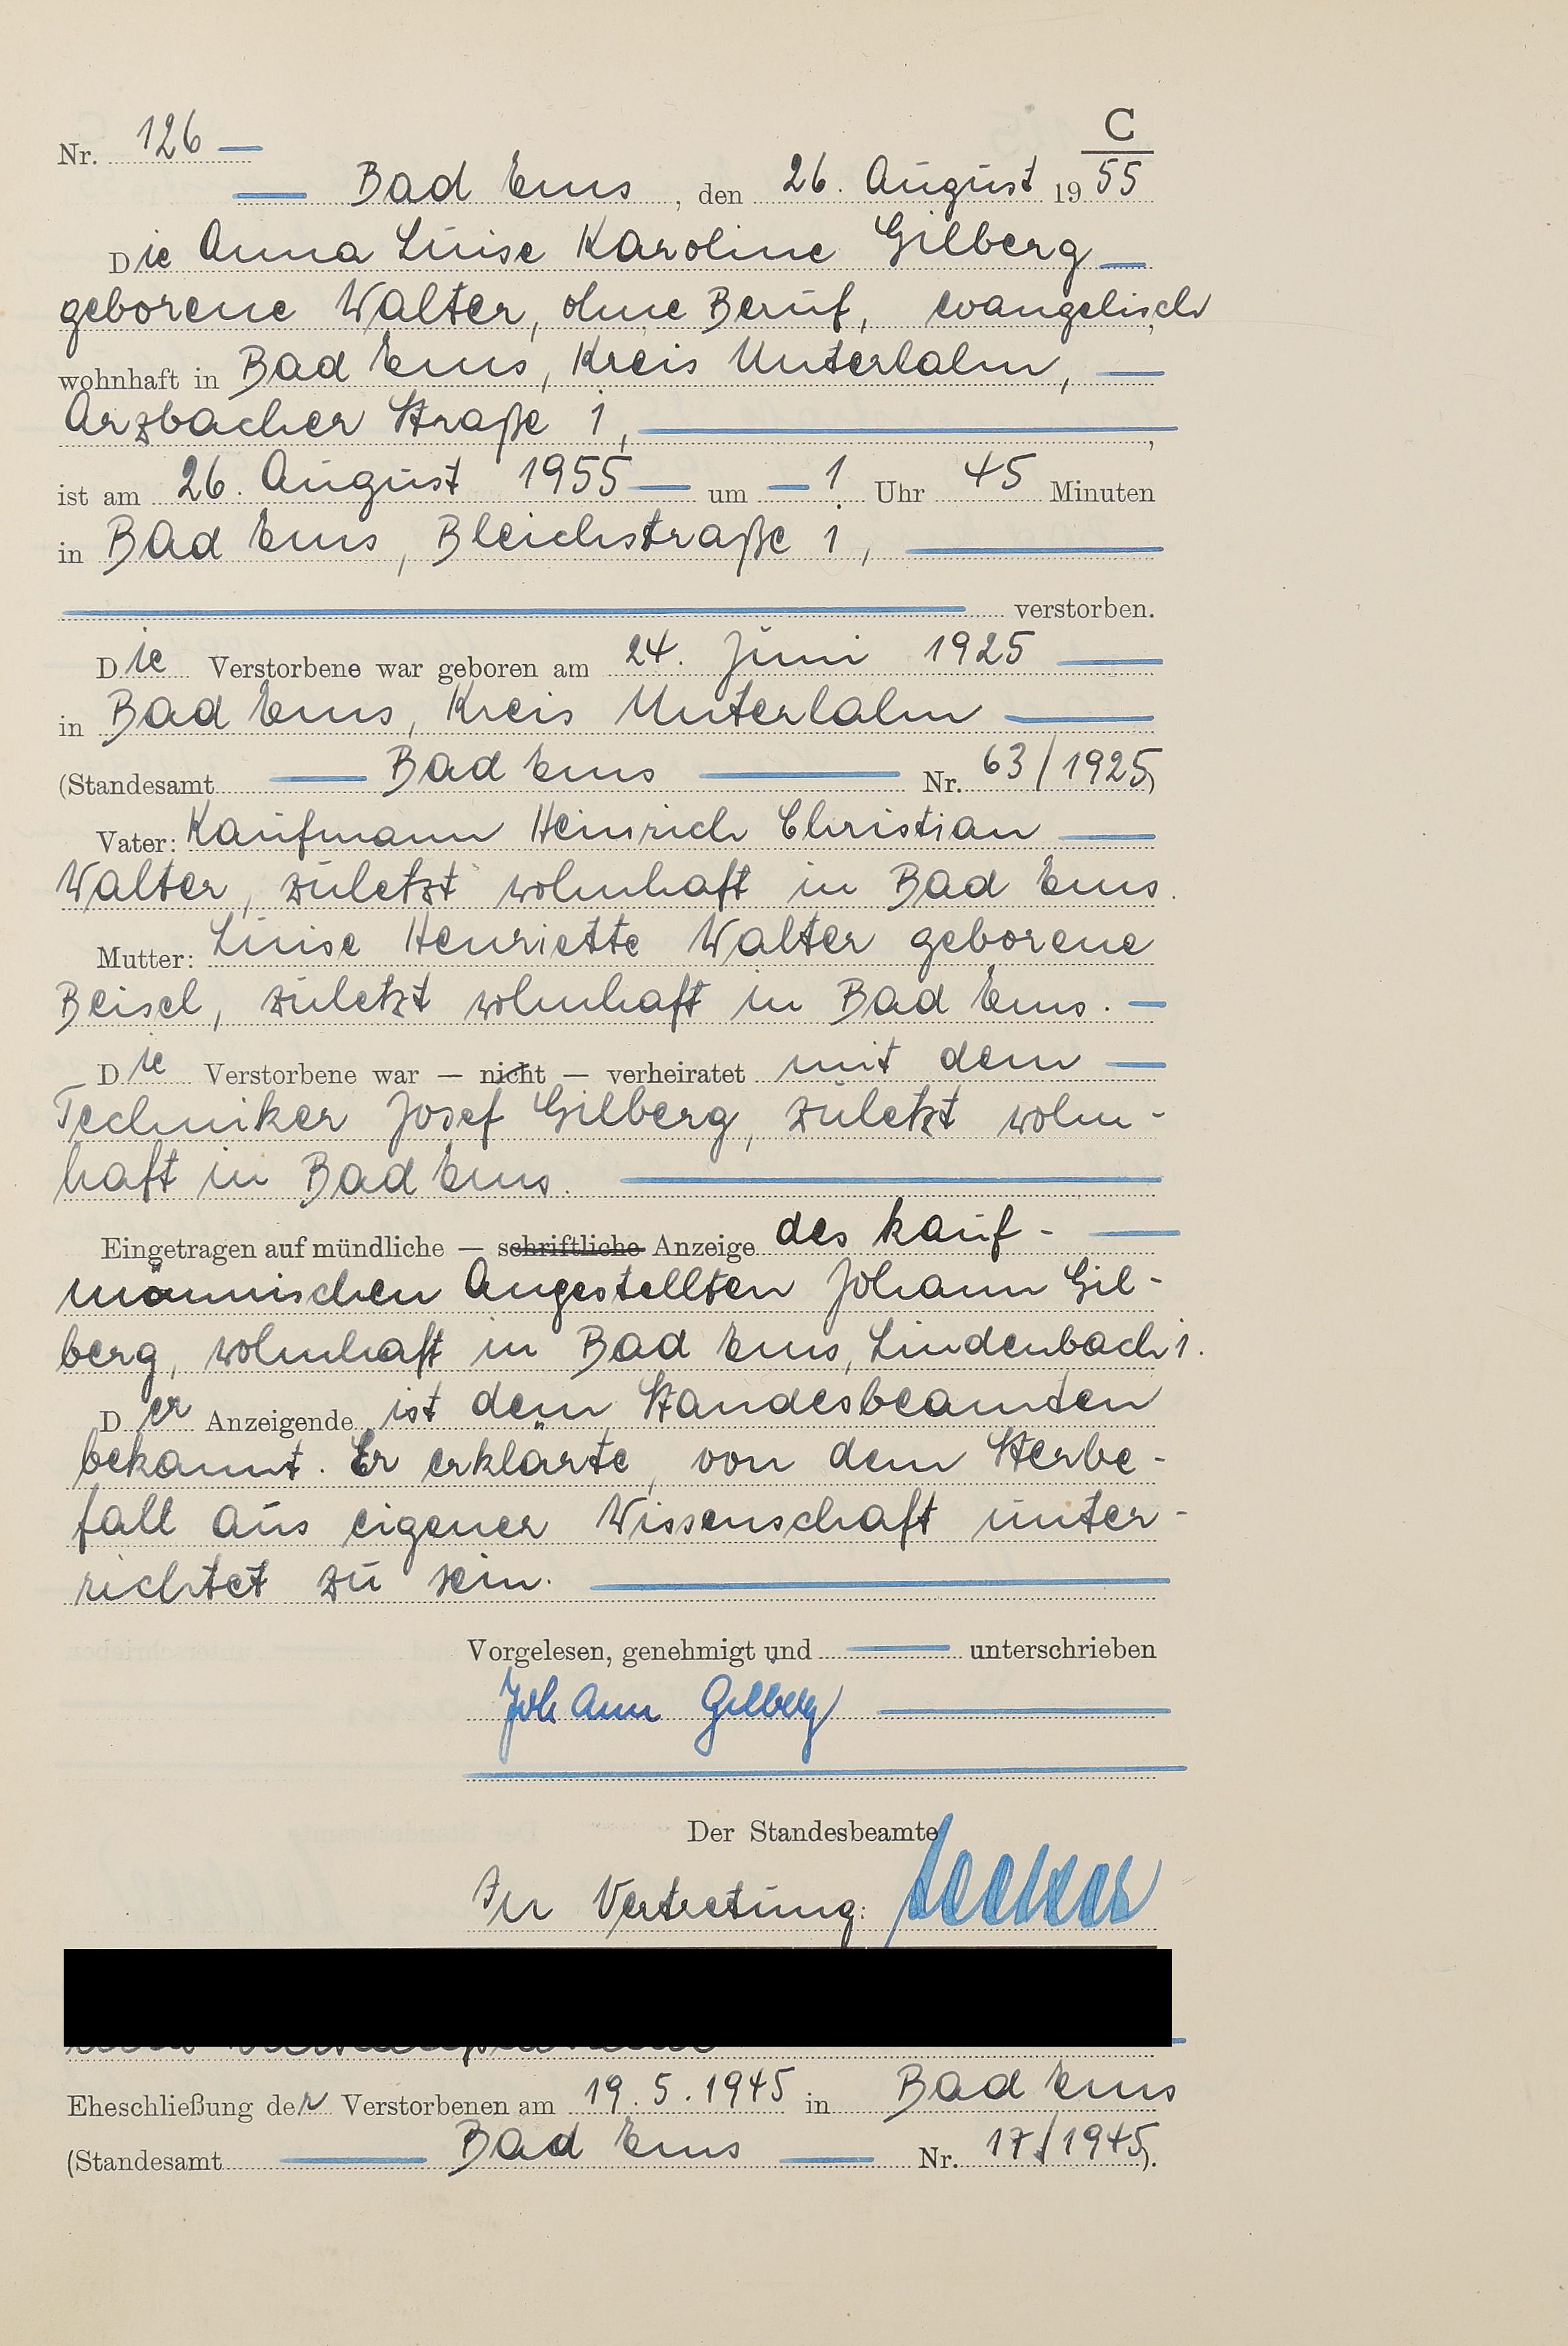 C
Nr. 126
Bad Ems, den 26. August 1955
Die Anna Luise Karoline Gilberg
geborene Walter, ohne Beruf, evangelisch,
wohnhaft in Bad Ems, Kreis Unterlahn,
Arzbacher Straße 1,
ist am 26. August 1955 um 1 Uhr 45 Minuten
in Bad Ems, Bleichstraße 1,
verstorben.
Die Verstorbene war geboren am 24. Juni 1925
in Bad Ems, Kreis Unterlahn
(Standesamt Bad Ems Nr. 63/1925)
Vater: Kaufmann Heinrich Christian
Walter, zuletzt wohnhaft in Bad Ems.
Mutter: Luise Henriette Walter geborene
Beisel, zuletzt wohnhaft in Bad Ems.
Die Verstorbene war — nicht — verheiratet mit dem
Techniker Josef Gilberg, zuletzt wohn-
haft in Bad Ems.
Eingetragen auf mündliche — schriftliche Anzeige des kauf-
männischen Angestellten Johann Gil-
berg, wohnhaft in Bad Ems, Lindenbach 1.
Der Anzeigende ist dem Standesbeamten
bekannt. Er erklärte, von dem Sterbe-
fall aus eigener Wissenschaft unter-
richtet zu sein.
Vorgelesen, genehmigt und unterschrieben
Johann Gilberg
Der Standesbeamte
In Vertretung:
Eheschließung der Verstorbenen am 19.5.1945 in Bad Ems
(Standesamt Bad Ems Nr. 17/1945).